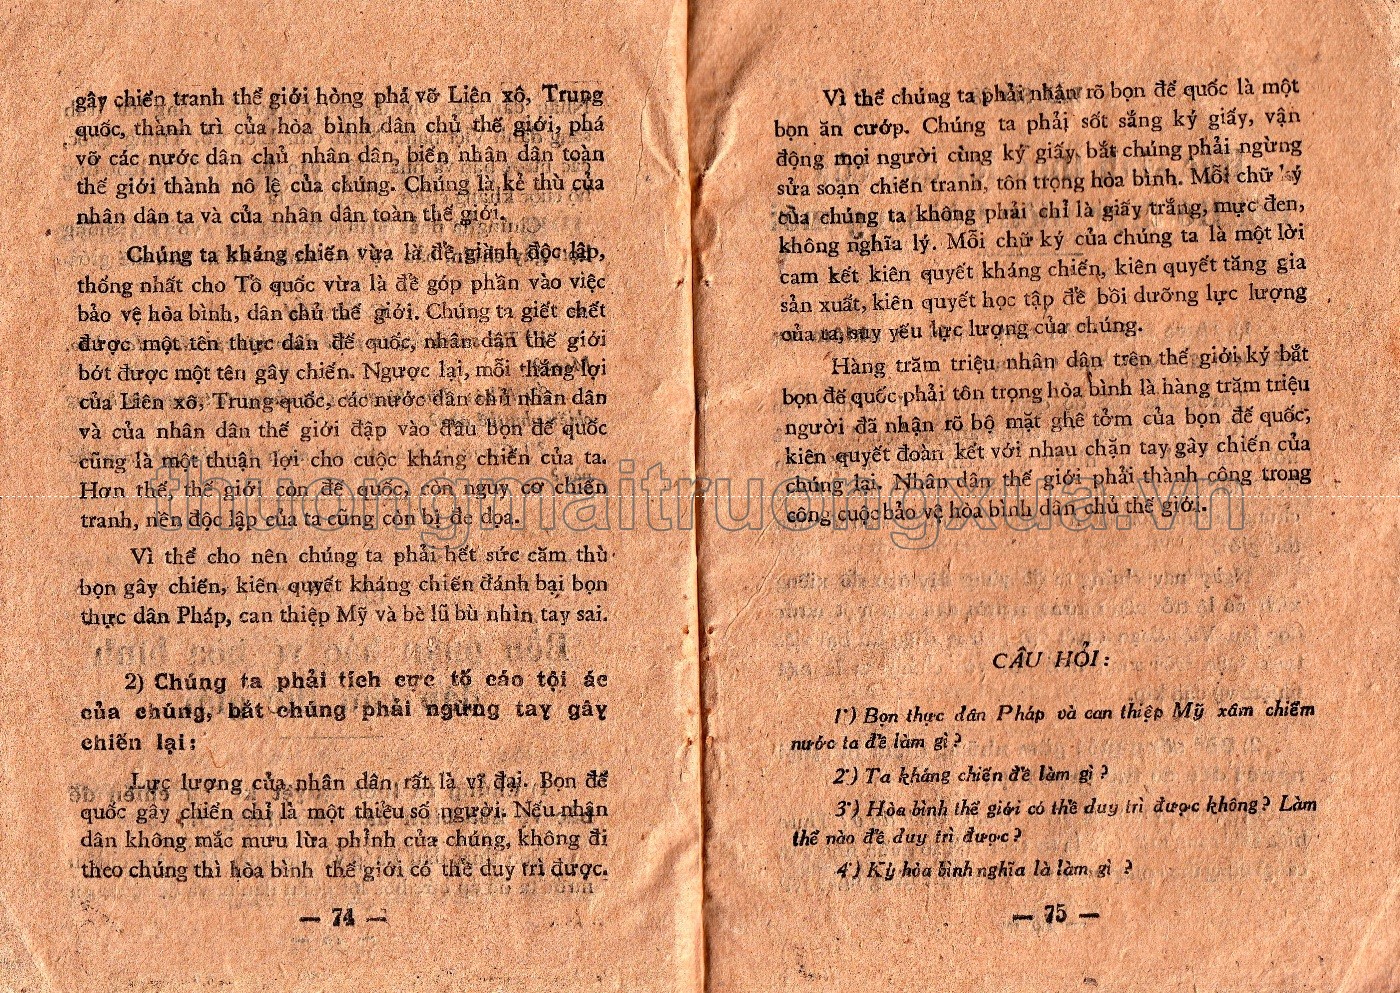 gây chiến tranh thế giới hòng phá vỡ Liên xô, Trung
quốc, thành trì của hòa bình dân chủ thế giới, phá
vỡ các nước dân chủ nhân dân, biến nhân dân toàn
thế giới thành nô lệ của chúng. Chúng là kẻ thù của
nhân dân ta và của nhân dân toàn thế giới.
Chúng ta kháng chiến vừa là để giành độc lập,
thống nhất cho Tổ quốc vừa là để góp phần vào việc
bảo vệ hòa bình, dân chủ thế giới. Chúng ta giết chết
được một tên thực dân đế quốc, nhân dân thế giới
bớt được một tên gây chiến. Ngược lại, mỗi thắng lợi
của Liên xô, Trung quốc, các nước dân chủ nhân dân
và của nhân dân thế giới đập vào đầu bọn đế quốc
cũng là một thuận lợi cho cuộc kháng chiến của ta.
Hơn thế, thế giới còn đế quốc, còn nguy cơ chiến
tranh, nền độc lập của ta cũng còn bị đe dọa.
Vì thế cho nên chúng ta phải hết sức căm thù
bọn gây chiến, kiên quyết kháng chiến đánh bại bọn
thực dân Pháp, can thiệp Mỹ và bè lũ bù nhìn tay sai.
2) Chúng ta phải tích cực tố cáo tội ác
của chúng, bắt chúng phải ngừng tay gây
chiến lại:
Lực lượng của nhân dân rất là vĩ đại. Bọn đế
quốc gây chiến chỉ là một thiểu số người. Nếu nhân
dân không mắc mưu lừa phỉnh của chúng, không đi
theo chúng thì hòa bình thế giới có thể duy trì được.
— 74 —
Vì thế chúng ta phải nhận rõ bọn đế quốc là một
bọn ăn cướp. Chúng ta phải sốt sắng ký giấy, vận
động mọi người cùng ký giấy, bắt chúng phải ngừng
sửa soạn chiến tranh, tôn trọng hòa bình. Mỗi chữ ký
của chúng ta không phải chỉ là giấy trắng, mực đen,
không nghĩa lý. Mỗi chữ ký của chúng ta là một lời
cam kết kiên quyết kháng chiến, kiên quyết tăng gia
sản xuất, kiên quyết học tập để bồi dưỡng lực lượng
của ta, suy yếu lực lượng của chúng.
Hàng trăm triệu nhân dân trên thế giới ký bắt
bọn đế quốc phải tôn trọng hòa bình là hàng trăm triệu
người đã nhận rõ bộ mặt ghê tởm của bọn đế quốc,
kiên quyết đoàn kết với nhau chặn tay gây chiến của
chúng lại. Nhân dân thế giới phải thành công trong
công cuộc bảo vệ hòa bình dân chủ thế giới.
CÂU HỎI:
1·) Bọn thực dân Pháp và can thiệp Mỹ xâm chiếm
nước ta để làm gì?
2·) Ta kháng chiến để làm gì?
3·) Hòa bình thế giới có thể duy trì được không? Làm
thế nào để duy trì được?
4·) Ký hòa bình nghĩa là làm gì?
— 75 —
thuongmaitruongxua.vn